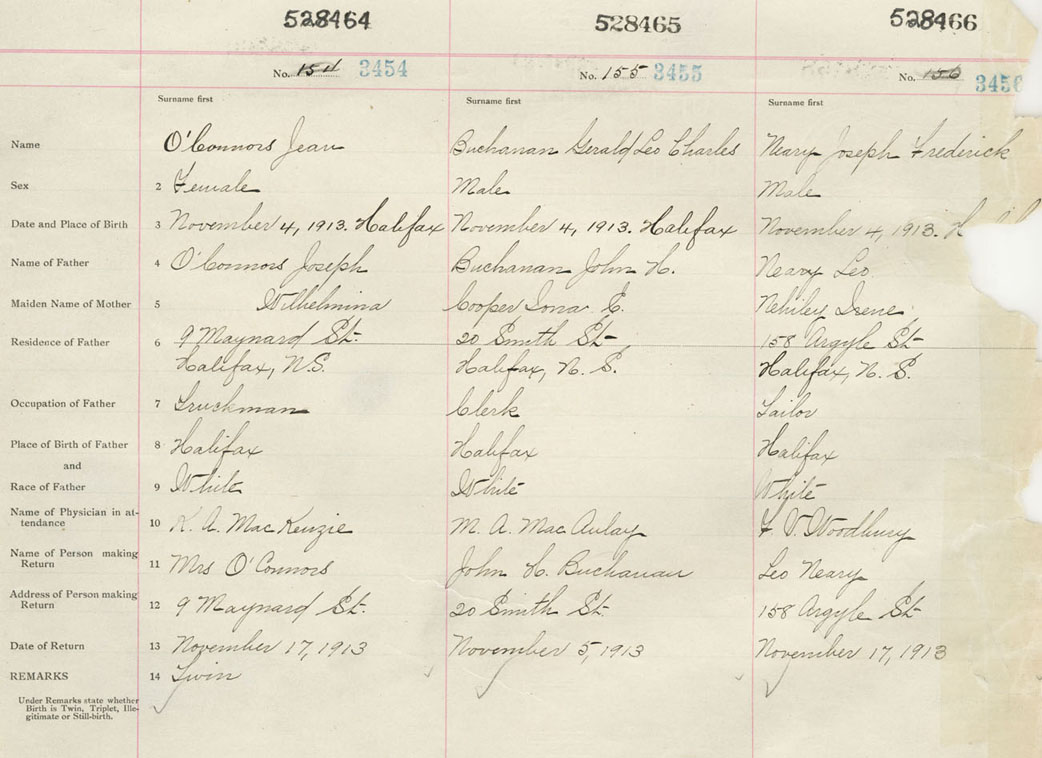 528464 528465 528466
No. 154 3454 No. 155 3455 No. 156 3456
Surname first Surname first Surname first
Name O'Connors Jean Buchanan Gerald Leo Charles Neary Joseph Frederick
Sex 2 Female Male Male
Date and Place of Birth 3 November 4, 1913. Halifax November 4, 1913. Halifax November 4, 1913. H
Name of Father 4 O'Connors Joseph Buchanan John H. Neary Leo.
Maiden Name of Mother 5 Wilhelmina Cooper Iona E. Nehiley Irene
Residence of Father 6 9 Maynard St. 20 Smith St. 158 Argyle St.
Halifax, N.S. Halifax, N. S. Halifax, N. S.
Occupation of Father 7 Truckman Clerk Tailor
Place of Birth of Father 8 Halifax Halifax Halifax
and
Race of Father 9 White White White
Name of Physician in at-
tendance 10 K. A. MacKenzie M. A. MacAulay F. V. Woodbury
Name of Person making
Return 11 Mrs O'Connors John H. Buchanan Leo Neary
Address of Person making
Return 12 9 Maynard St. 20 Smith St. 158 Argyle St.
Date of Return 13 November 17, 1913 November 5, 1913 November 17, 1913
REMARKS 14 Twin
Under Remarks state whether
Birth is Twin, Triplet, Ille-
gitimate or Still-birth.